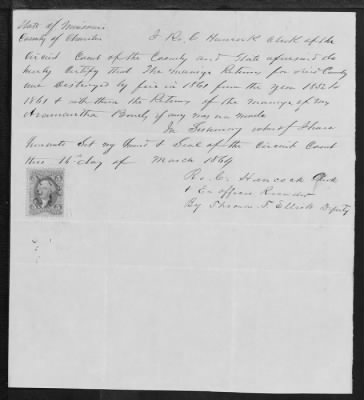 State of Missouri
County of
I Ro. C. Hancock Clerk of the
Circuit Court of the County and State aforesaid do
hereby Certify that the marriage Returns for said County
were destroyed by fire in 1861 from the year 1852 to
1861 & with them the Returns of the marriage of
if any was made
In Testimony whereof I have
hereunto Set my Hand & Seal of the Circuit Court
this 16th day of March 1864
Ro. C. Hancock Clerk
& Ex officio Recorder
By Elliott Deputy